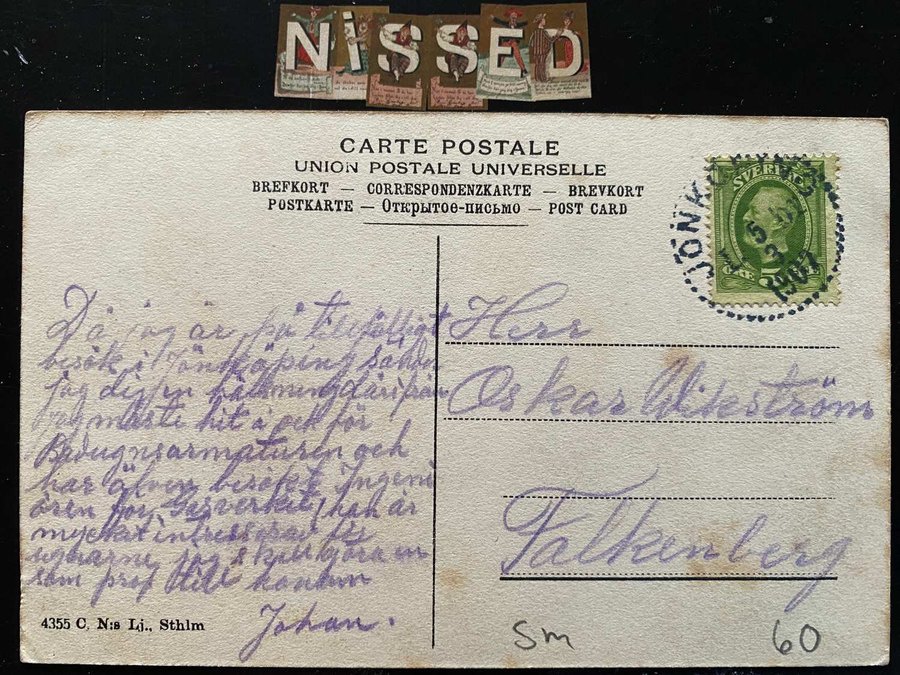 NiSSED
CARTE POSTALE
UNION POSTALE UNIVERSELLE
BREFKORT — CORRESPONDENZKARTE — BREVKORT
POSTKARTE — Открытое-письмо — POST CARD
SVERIGE
JÖNK
1907
5
Då jag är på tillfälligt
besök i Jönköping sänder
jag dig en hälsning därifrån
Jag måste hit i och för
har även besökt Ingeni
ören för Gasverket, han är
mycket intresserad
jag skall göra en
som prof till honom
Johan.
Herr
Oskar Wikström
Falkenberg
4355 C. N:s Lj., Sthlm
Sm
60